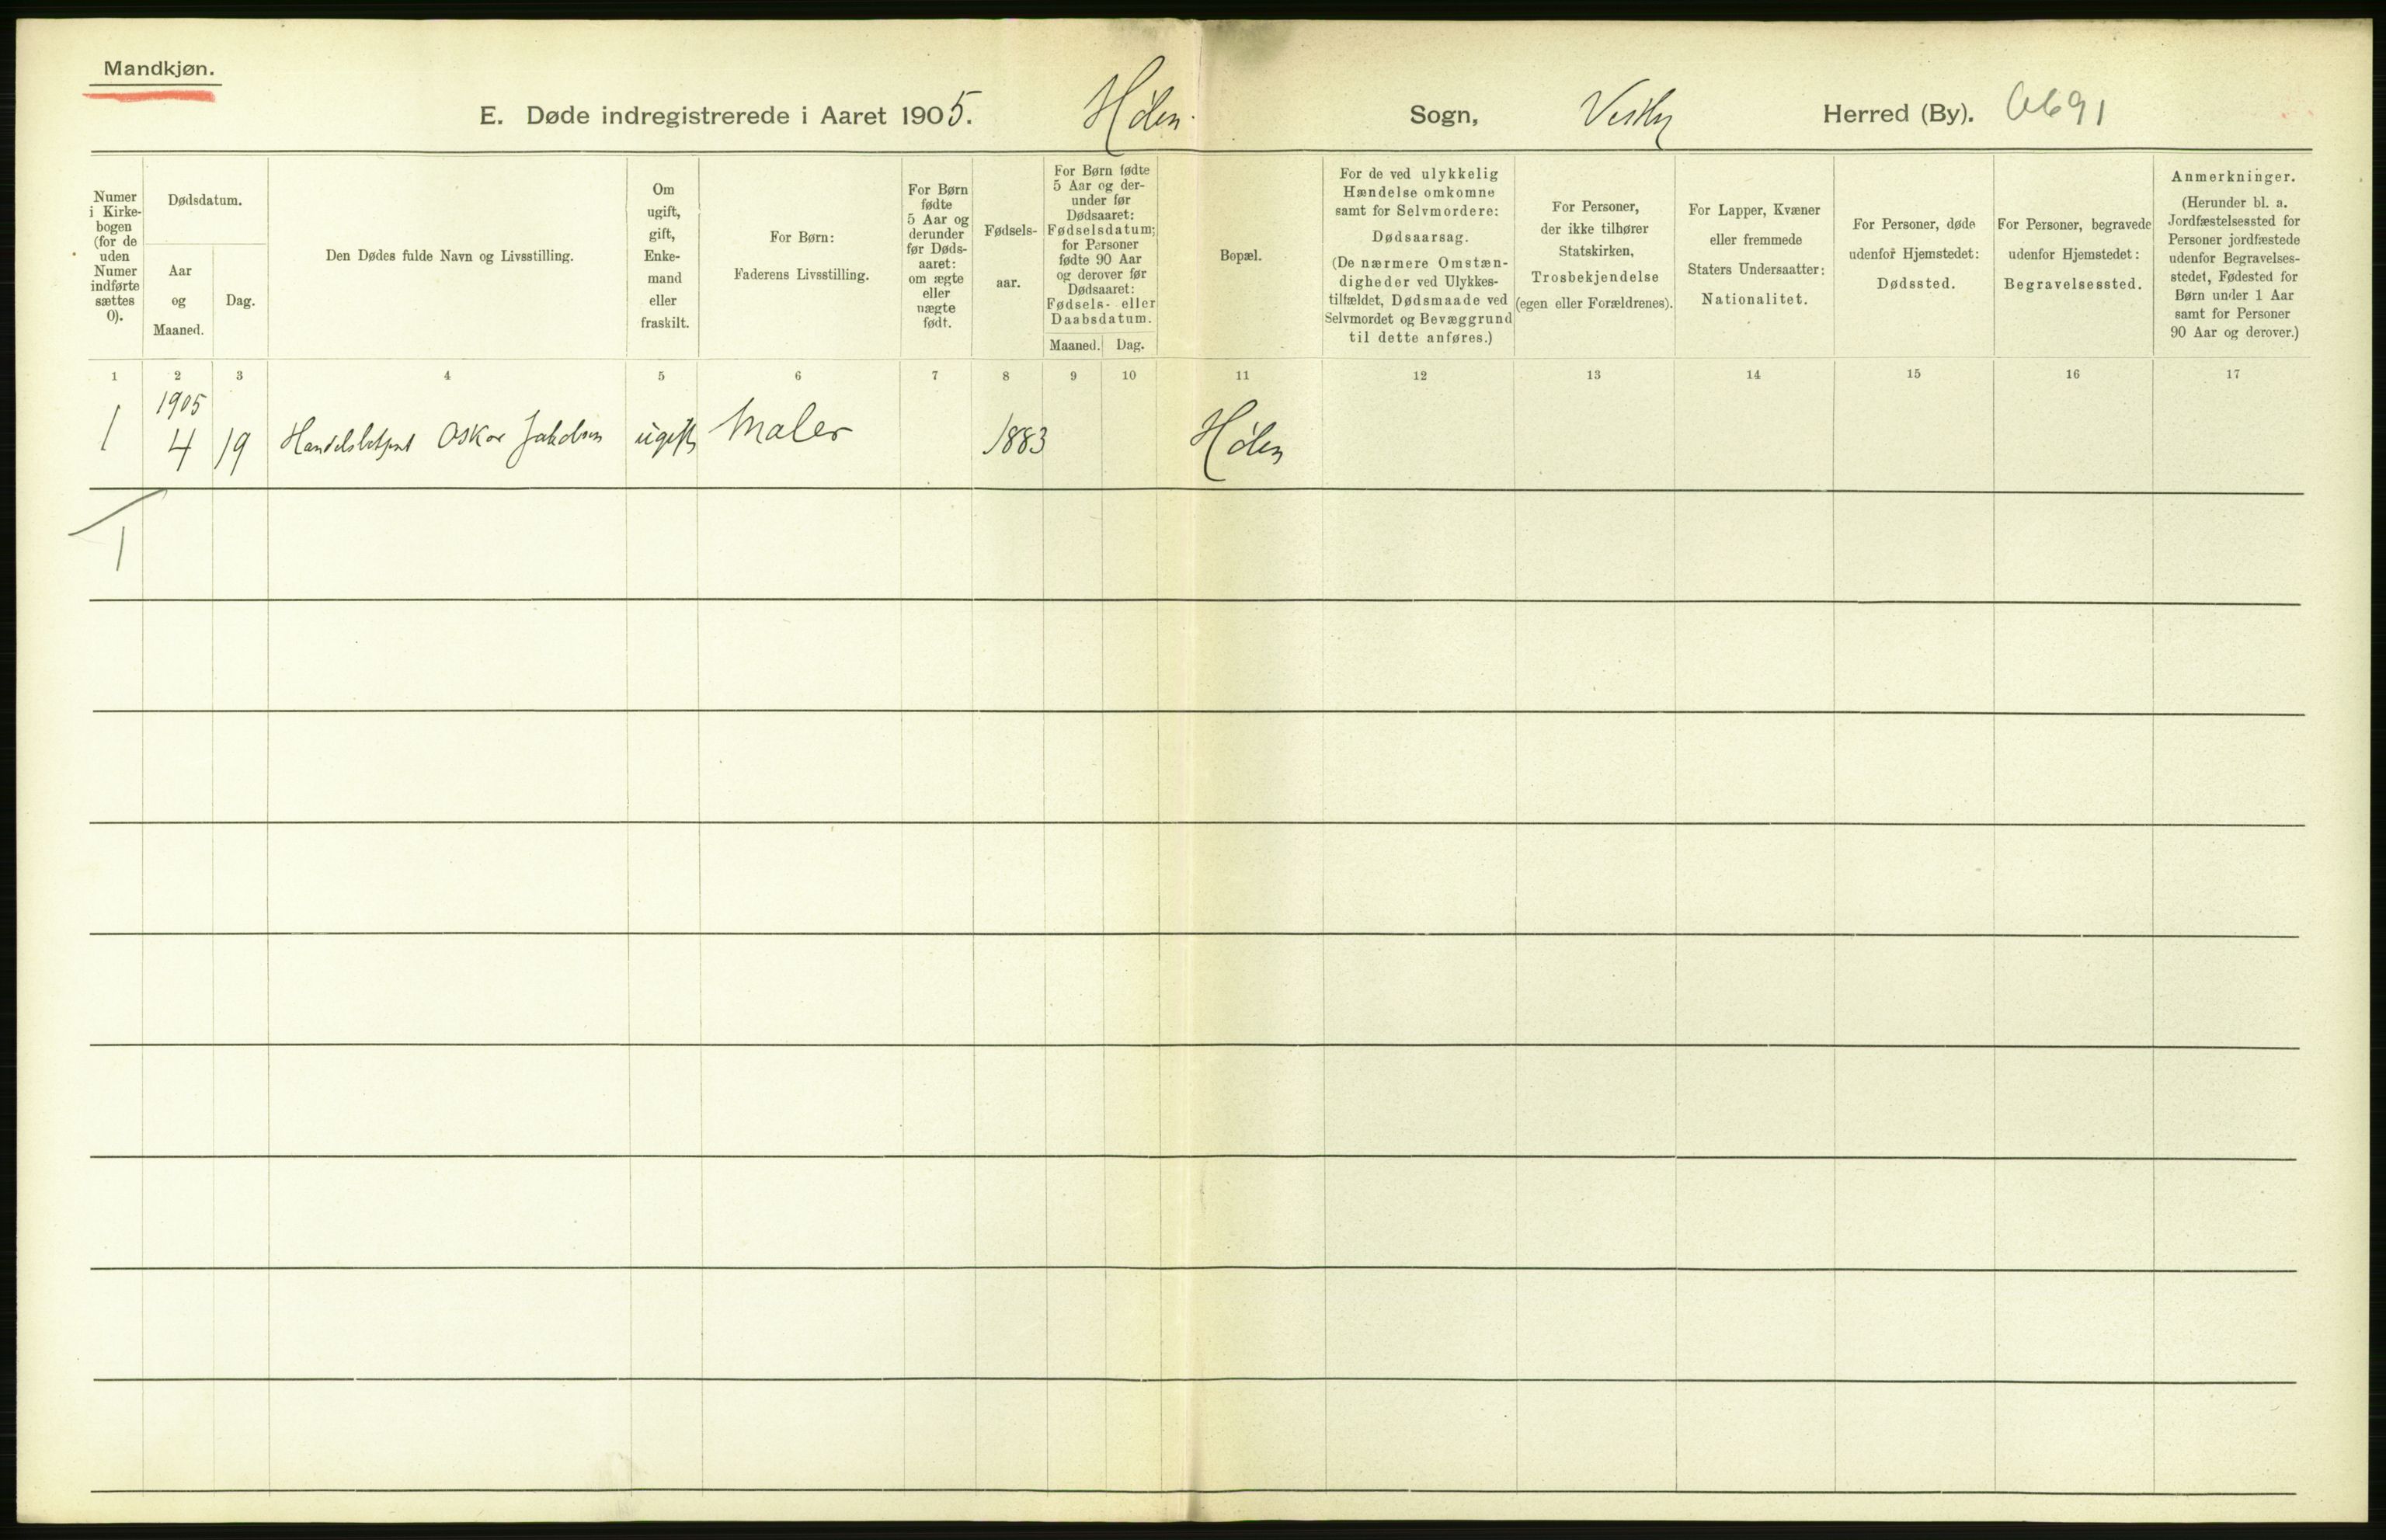 Mandkjøn.
E. Døde indregistrerede i Aaret 1905. Hölen. Sogn, Vestby Herred (By). 0691
Numer
i Kirke-
bogen
(for de
uden
Numer
indførte
sættes
0).
Dødsdatum.
Aar
og
Maaned.
Dag.
Den Dødes fulde Navn og Livsstilling.
Om
ugift,
gift,
Enke-
mand
eller
fraskilt.
For Børn:
Faderens Livsstilling.
For Børn
fødte
5 Aar og
derunder
før Døds-
aaret:
om ægte
eller
uægte
født.
Fødsels-
aar.
For Børn fødte
5 Aar og der-
under før
Dødsaaret:
Fødselsdatum;
for Personer
fødte 90 Aar
og derover før
Dødsaaret:
Fødsels- eller
Daabsdatum.
Maaned. Dag.
Bopæl.
For de ved ulykkelig
Hændelse omkomne
samt for Selvmordere:
Dødsaarsag.
(De nærmere Omstæn-
digheder ved Ulykkes-
tilfældet, Dødsmaade ved
Selvmordet og Bevæggrund
til dette anføres.)
For Personer,
der ikke tilhører
Statskirken,
Trosbekjendelse
(egen eller Forældrenes).
For Lapper, Kvæner
eller fremmede
Staters Undersaatter:
Nationalitet.
For Personer, døde
udenfor Hjemstedet:
Dødssted.
For Personer, begravede
udenfor Hjemstedet:
Begravelsessted.
Anmerkninger.
(Herunder bl. a.
Jordfæstelsessted for
Personer jordfæstede
udenfor Begravelses-
stedet, Fødested for
Børn under 1 Aar
samt for Personer
90 Aar og derover.)
1 2 3 4 5 6 7 8 9 10 11 12 13 14 15 16 17
1905
1 4 19 Handelsbetjent Oskar Jakobsen ugift Maler 1883 Hölen
1